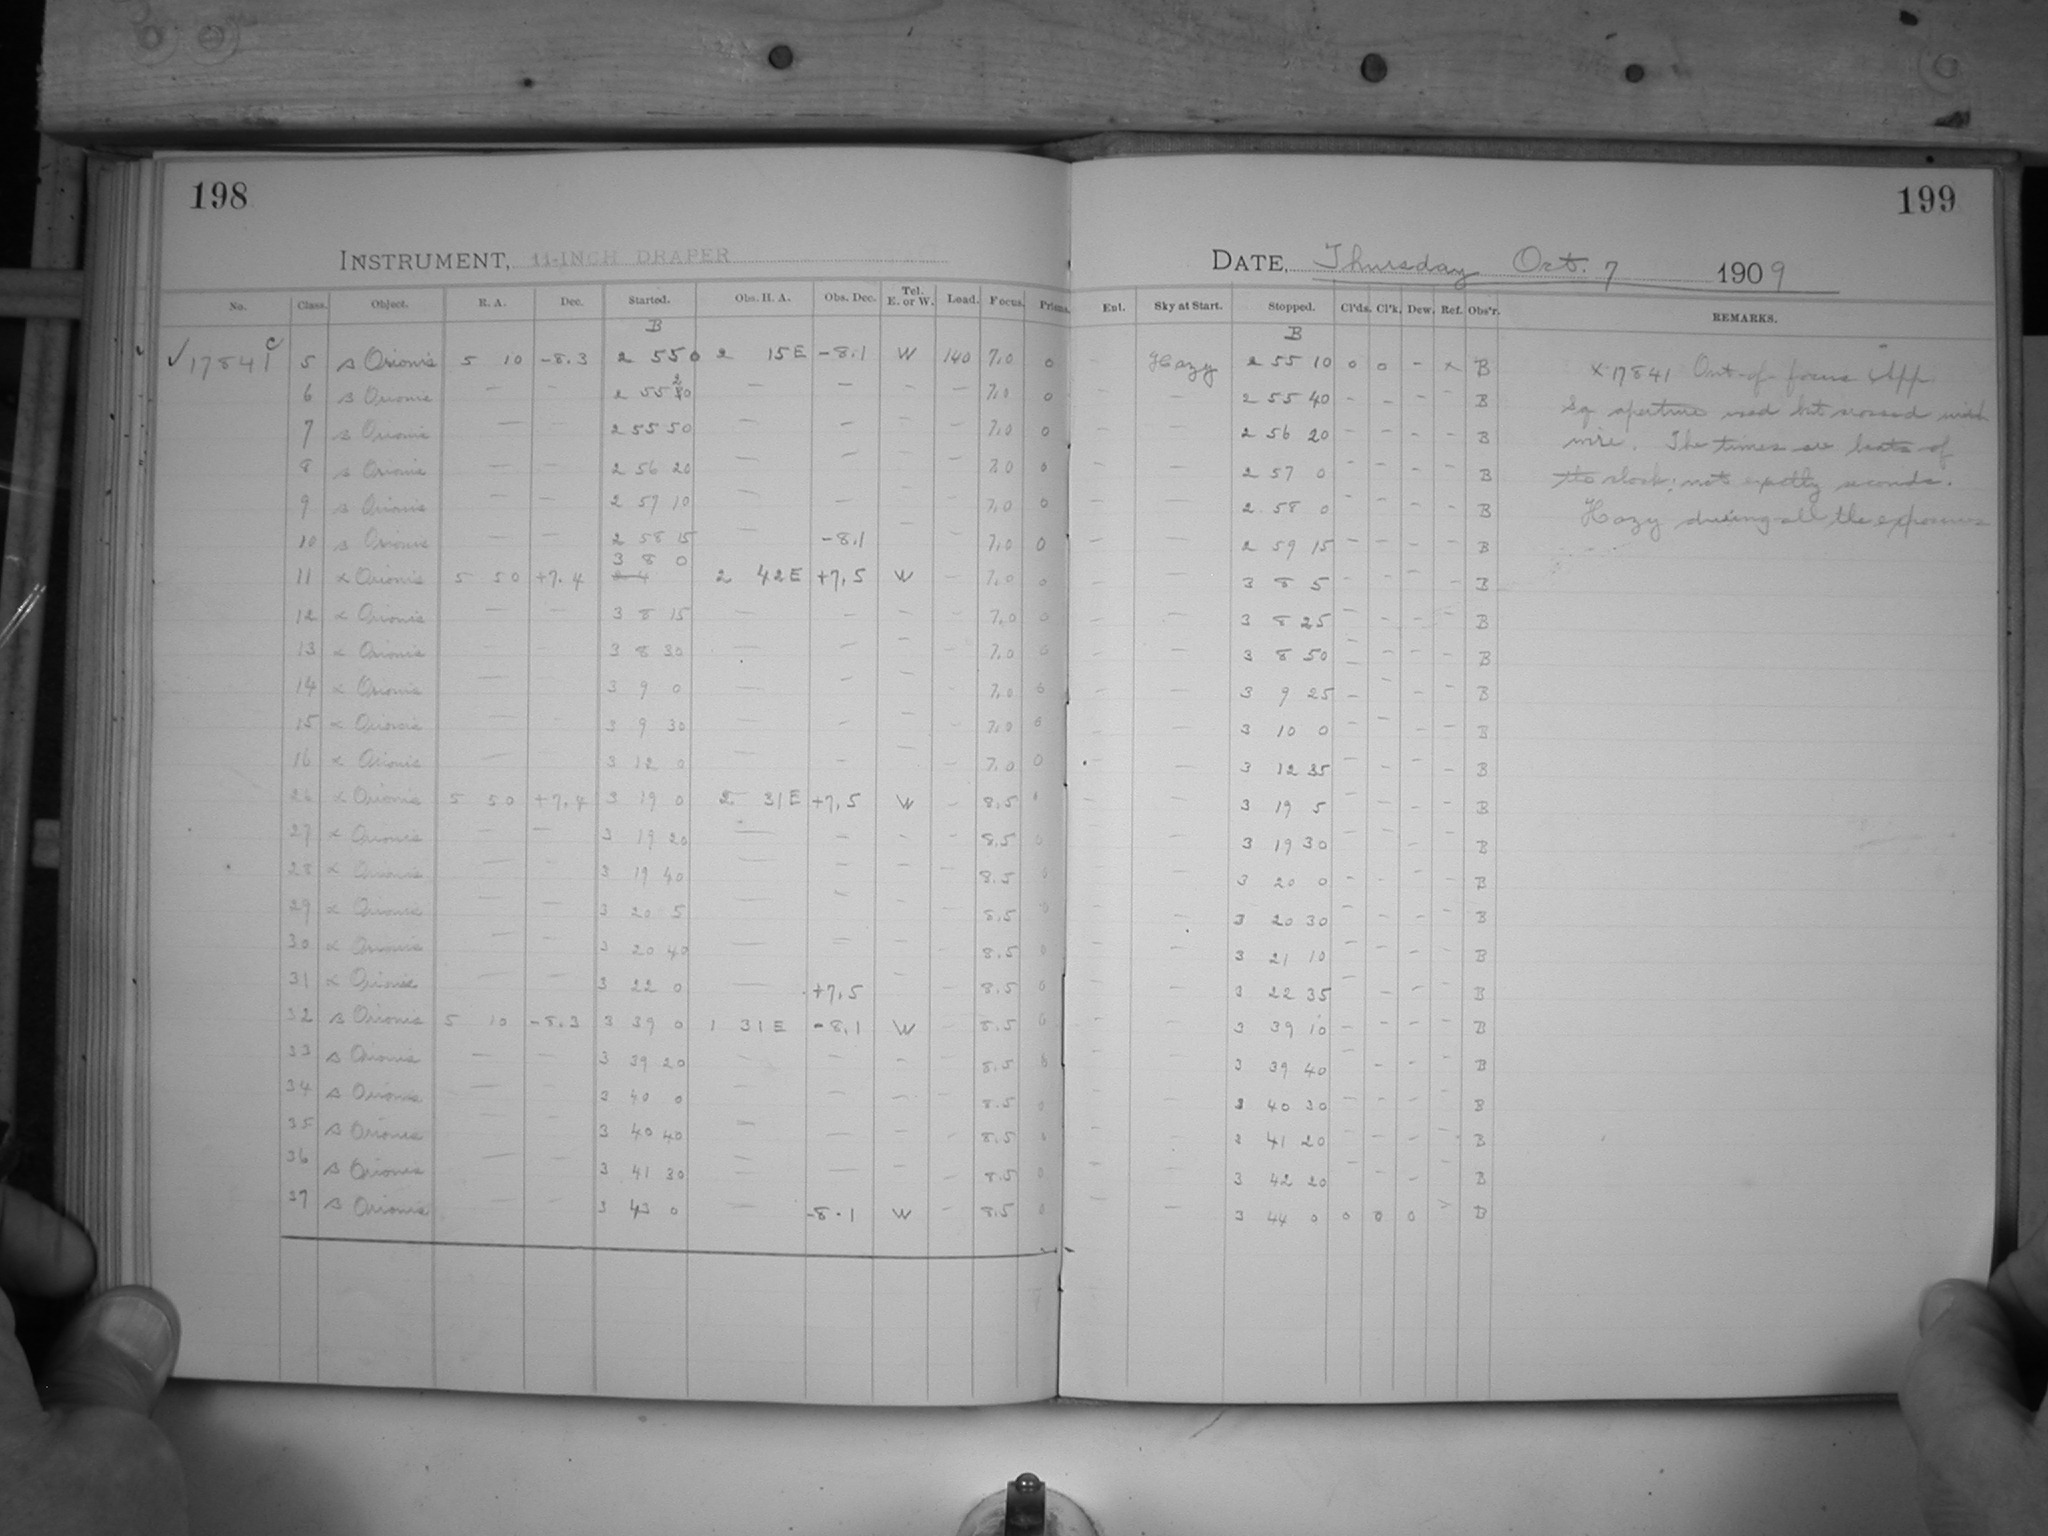 198
199
INSTRUMENT, 11-INCH DRAPER
DATE, Thursday Oct. 7 1909
No. Class. Object. R. A. Dec. Started. Obs. H. A. Obs. Dec. Tel. E. or W. Load. Focus. Prisms. Ent. Sky at Start. Stopped. Cl'ds. Cl'k. Dew. Ref. Obs'r. REMARKS.
B B
✓17841 C 5 β Orionis 5 10 -8.3 2 55 0 2 15E -8.1 W 140 7.0 0 - Hazy 2 55 10 0 0 - x B x 17841 Out of focus
6 β Orionis — — 2 55 20 — — - - 7.0 0 - — 2 55 40 - - - - B Sq aperture used but crossed with
7 β Orionis — — 2 55 50 — — - - 7.0 0 - — 2 56 20 - - - - B wire. The times are beats of
8 β Orionis — — 2 56 20 — — - - 7.0 0 - — 2 57 0 - - - - B the clock; not exactly seconds.
9 β Orionis — — 2 57 10 — — - - 7.0 0 - — 2 58 0 - - - - B Hazy during all the exposures
10 β Orionis — — 2 58 15 -8.1 - - 7.0 0 - — 2 59 15 - - - - B
11 α Orionis 5 50 +7.4 3 8 0 2 42E +7.5 W - 7.0 0 - — 3 8 5 - - - - B
12 α Orionis — — 3 8 15 — — - - 7.0 0 - — 3 8 25 - - - - B
13 α Orionis — — 3 8 30 — — - - 7.0 0 - — 3 8 50 - - - - B
14 α Orionis — — 3 9 0 — — - - 7.0 0 - — 3 9 25 - - - - B
15 α Orionis — — 3 9 30 — — - - 7.0 0 - — 3 10 0 - - - - B
16 α Orionis — 3 12 0 — — - - 7.0 0 - — 3 12 35 - - - - B
26 α Orionis 5 50 +7.4 3 19 0 2 31E +7.5 W - 8.5 - — 3 19 5 - - - - B
27 α Orionis — — 3 19 20 — — - - 8.5 0 - — 3 19 30 - - - - B
28 α Orionis — — 3 19 40 — — - - 8.5 0 - — 3 20 0 - - - - B
29 α Orionis — — 3 20 5 — — - - 8.5 0 - — 3 20 30 - - - - B
30 α Orionis — — 3 20 40 — — - - 8.5 0 - — 3 21 10 - - - - B
31 α Orionis — — 3 22 0 — +7.5 - 8.5 0 - — 3 22 35 - - - - B
32 β Orionis 5 10 -8.3 3 39 0 1 31E -8.1 W - 8.5 0 - — 3 39 10 - - - - B
33 β Orionis — — 3 39 20 — — - - 8.5 0 - — 3 39 40 - - - - B
34 β Orionis — 3 40 0 — — - - 8.5 0 - — 3 40 30 - - - - B
35 β Orionis — — 3 40 40 — — - - 8.5 0 - — 3 41 20 - - - - B
36 β Orionis — — 3 41 30 — — - - 8.5 0 - — 3 42 20 - - - - B
37 β Orionis — — 3 43 0 — -8.1 W - 8.5 0 - — 3 44 0 0 0 0 B